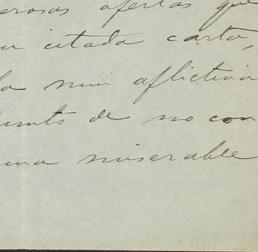 erosas ofertas que
u citada carta,
la mui aflictiva
punto de no con
una miserable